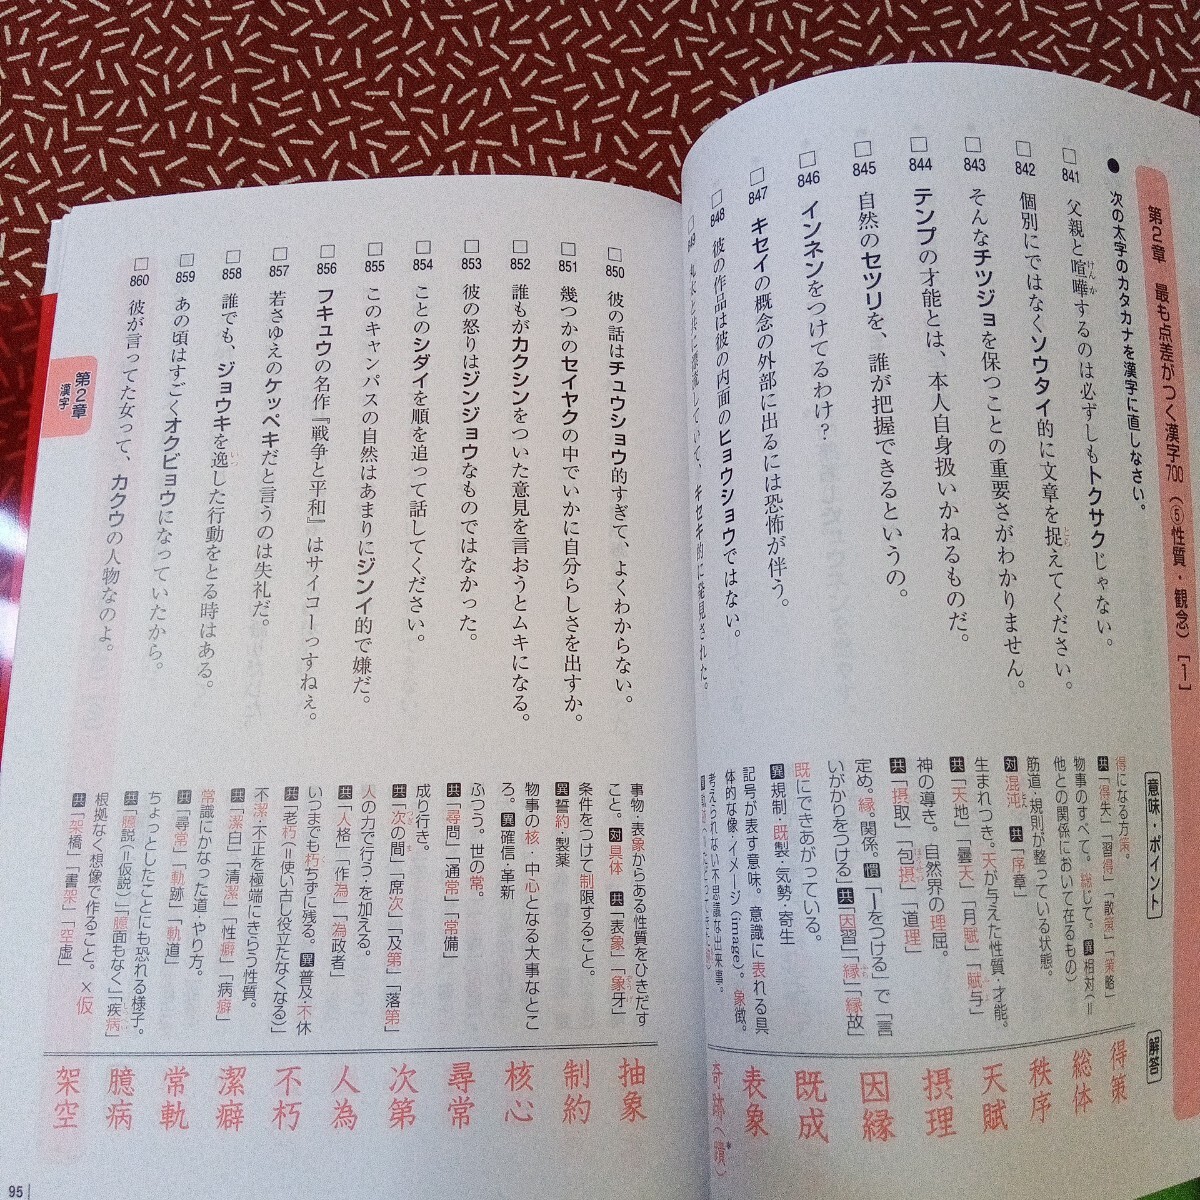 第2章 最も点差がつく漢字700（⑤性質・観念）［1］
● 次の太字のカタカナを漢字に直しなさい。
意味・ポイント
解答
□841 父親と喧嘩するのは必ずしもトクサクじゃない。
得になる方策。
共「得失」「習得」「散策」「策略」
得策
□842 個別にではなくソウタイ的に文章を捉えてください。
物事のすべて。総じて。異 相対（＝
他との関係において在るもの）
総体
□843 そんなチツジョを保つことの重要さがわかりません。
筋道・規則が整っている状態。
対 混沌 共「序章」
秩序
□844 テンプの才能とは、本人自身扱いかねるものだ。
生まれつき。天が与えた性質・才能。
共「天地」「曇天」「月賦」「賦与」
天賦
□845 自然のセツリを、誰が把握できるというの。
神の導き。自然界の理屈。
共「摂取」「包摂」「道理」
摂理
□846 インネンをつけてるわけ？
定め。縁。関係。慣「―をつける」で「言
いがかりをつける」共「因習」「縁」「縁故」
因縁
□847 キセイの概念の外部に出るには恐怖が伴う。
既にできあがっている。
異 規制・既製・気勢・寄生
既成
□848 彼の作品は彼の内面のヒョウショウではない。
記号が表す意味。意識に表れる具
体的な像・イメージ（image）。象徴。
表象
□849
キセキ的に発見された。
考えられない不思議な出来事。
奇跡（蹟）
□850 彼の話はチュウショウ的すぎて、よくわからない。
事物・表象からある性質をひきだす
こと。対 具体 共「表象」「象牙」
抽象
□851 幾つかのセイヤクの中でいかに自分らしさを出すか。
条件をつけて制限すること。
異 誓約・製薬
制約
□852 誰もがカクシンをついた意見を言おうとムキになる。
物事の核・中心となる大事なとこ
ろ。異 確信・革新
核心
□853 彼の怒りはジンジョウなものではなかった。
ふつう。世の常。
共「尋問」「通常」「常備」
尋常
□854 ことのシダイを順を追って話してください。
成り行き。
共「次の間」「席次」「及第」「落第」
次第
□855 このキャンパスの自然はあまりにジンイ的で嫌だ。
人の力で行う・を加える。
共「人格」「作為」「為政者」
人為
□856 フキュウの名作『戦争と平和』はサイコーっすねぇ。
いつまでも朽ちずに残る。異 普及・不休
共「老朽（＝使い古し役立たなくなる）」
不朽
□857 若さゆえのケッペキだと言うのは失礼だ。
不潔・不正を極端にきらう性質。
共「潔白」「清潔」「性癖」「病癖」
潔癖
□858 誰でも、ジョウキを逸した行動をとる時はある。
常識にかなった道・やり方。
共「尋常」「軌跡」「軌道」
常軌
□859 あの頃はすごくオクビョウになっていたから。
ちょっとしたことにも恐れる様子。
共「臆説（＝仮説）」「臆面もなく」「疾病」
臆病
□860 彼が言ってた女って、カクウの人物なのよ。
根拠なく想像で作ること。×仮
共「架橋」「書架」「空虚」
架空
第2章
漢字
95